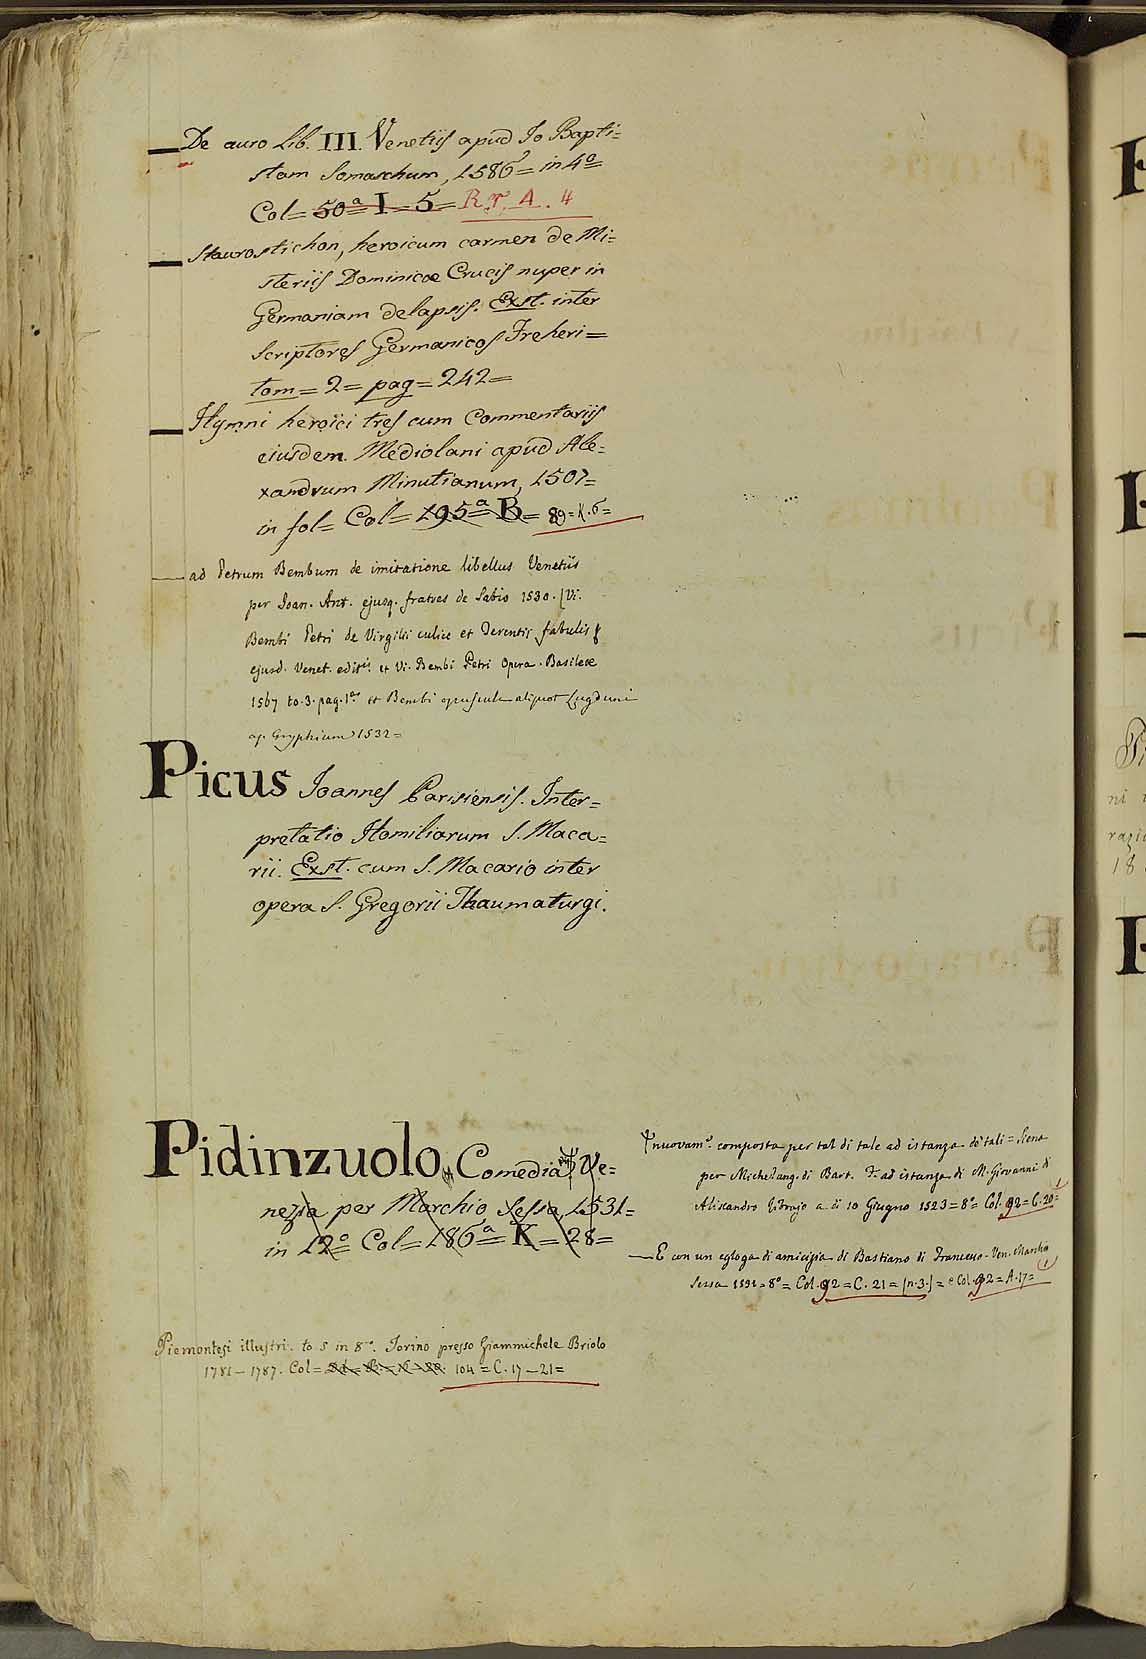 De auro Lib. III. Venetiis apud Io Bapti=
stam Somaschum, 1586= in 4º=
Col= 50ª I=5= R.r. A. 4
Staurostichon, heroicum carmen de Mi=
steriis Dominicæ Crucis nuper in
Germaniam delapsis. Exst. inter
Scriptores Germanicos Freheri=
tom=2=pag=242=
Hymni heroici tres cum Commentariis
eiusdem. Mediolani apud Ale=
xandrum Minutianum, 1507=
in fol= Col= 195ª= B= 89=K.6=
ad Petrum Bembum de imitatione libellus Venetiis
per Ioan. Ant. ejusq. fratres de Sabio 1530. (Vi.
Bembi Petri de Virgilii culice et Terentii fabulis
ejusd. Venet. editis. et Vi. Bembi Petri Opera. Basileæ
1567 to.3.pag.1ª et Bembi opuscula aliquot Lugduni
ap. Gryphium 1532=
Picus Joannes Parisiensis. Inter=
pretatio Homiliarum S. Maca=
rii. Exst. cum S. Macario inter
opera S. Gregorii Thaumaturgi.
Pidinzuolo, Comedia. Ve=
nezia per Marchio Sessa, 1531=
in 12º Col= 186ª= K=28=
nuovamᵉ. composta per tal di tale ad istanza de tali= Siena
per Michelang. di Bart. F. ad istanza di M. Giovanni di
Alisandro Librajo a di 10 Giugno 1523=8º= Col.92=C.20=
E con un egloga di amicizia di Bastiano di Francesco. Ven. Marchio
Sessa 1531=8º= Col.92=C.21=(n.3.)= e Col.92=A.17=
Piemontesi illustri. to 5 in 8º. Torino presso Giammichele Briolo
1781-1787. Col= 104=C.17-21=